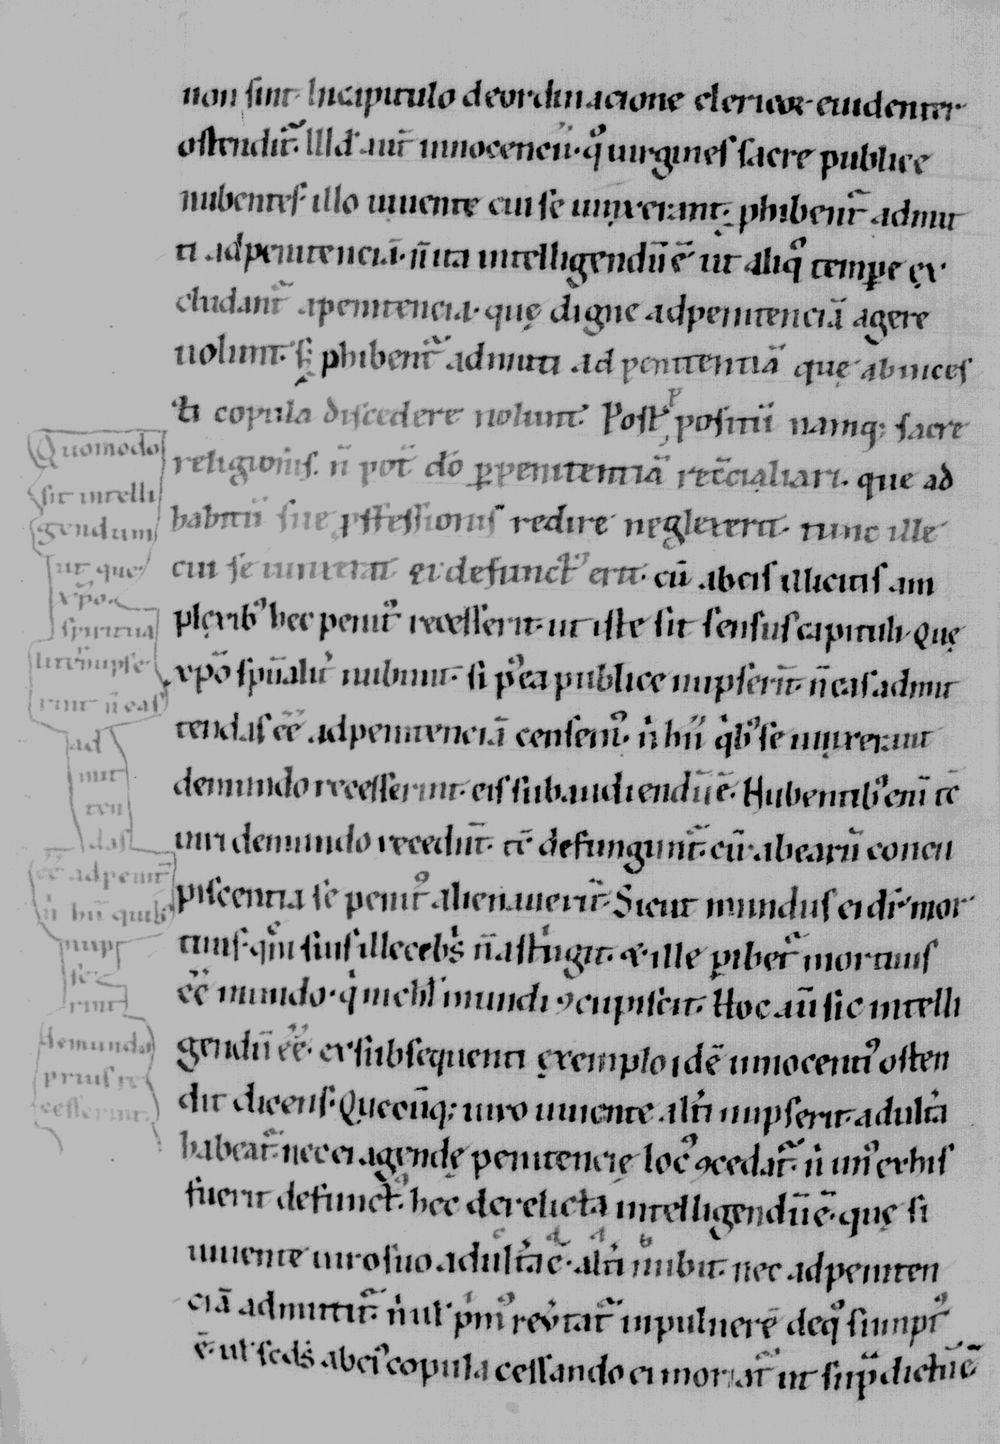 non sint. In capitulo de ordinacione clericoꝝ euidenter
ostendit᷑. Illđ aut̄ innocencii. qđ uirgines sacre publice
nubentes. illo uiuente cui se iunxerant. ꝓhibent᷑ admit
ti ad penitenciā. n̄ ita intelligendū ē ut aliqͦ tempꝛe ex
cludant᷑ a penitencia. quę digne ad penitenciā agere
uolunt. sꝫ ꝓhibent᷑ admitti ad penitentiā quę ab inces
ti copula discedere nolunt. Post ꝓpositū namqꝫ sacre
religionis. n̄ pot̄ dō ꝑ penitentiā rec̄cialiari. que ad
habitū sue ꝓfessionis redire neglexerit. tunc ille
cui se iunxerat ei defunctꝰ erit. cū ab eis illicitis am
plexibꝰ hec penitꝰ recesserit. ut iste sit sensus capituli. Quę
xp̄o sp̄ualit᷑ nubunt. si pꝰea publice nupserīt. n̄ eas admit
tendas eē ad penitenciā censemꝰ. n̓ hii q̓bꝰ se iunxerant
de mundo recesserint. eis subaudiendū ē. Nubentibꝰ enī tc̄
uiri de mundo recedūt. tc̄ defungunt᷑. cū ab earū concu
piscentia se penitꝰ alienauerīt. Sicut mundus ei dr̄ mor
tuus. quē suis illecebs̓ n̄ ast̓ngit. & ille ꝑhibet᷑ mortuus
eē mundo. q̓ nichil mundi ꝯcupiscit. Hoc aū sic intelli
gendū eē. ex subsequenti exemplo idē innocentiꝰ osten
dit dicens. Quecūqꝫ uiro uiuente alt̓i nupserit. adult̓a
habeat᷑. nec ei agendę penitencię locꝰ ꝯcedat᷑. n̓ unꝰ ex his
fuerit defunctꝰ. hec de relicta intelligendū ē. quę si
uiuente uiro suo adult̓a ē. alt̓i nubit. nec ad peniten
ciā admittit᷑. n̓ ul̓ p̓mꝰ reu̓tat᷑ in puluerē de qͦ sumptꝰ
ē. ul̓ scd̓s ab eiꝰ copula cessando ei moriat᷑ ut sup̄ dictū ē
Quomodo
sit intelli
gendum
ut que
xp̄o
spiritua
lit̓ nupse
rint n̄ eas
ad
mit
ten
das
eē ad penit̄
n̓ hii quibꝰ
nup
se
rint
de mundo
prius re
cesserint.